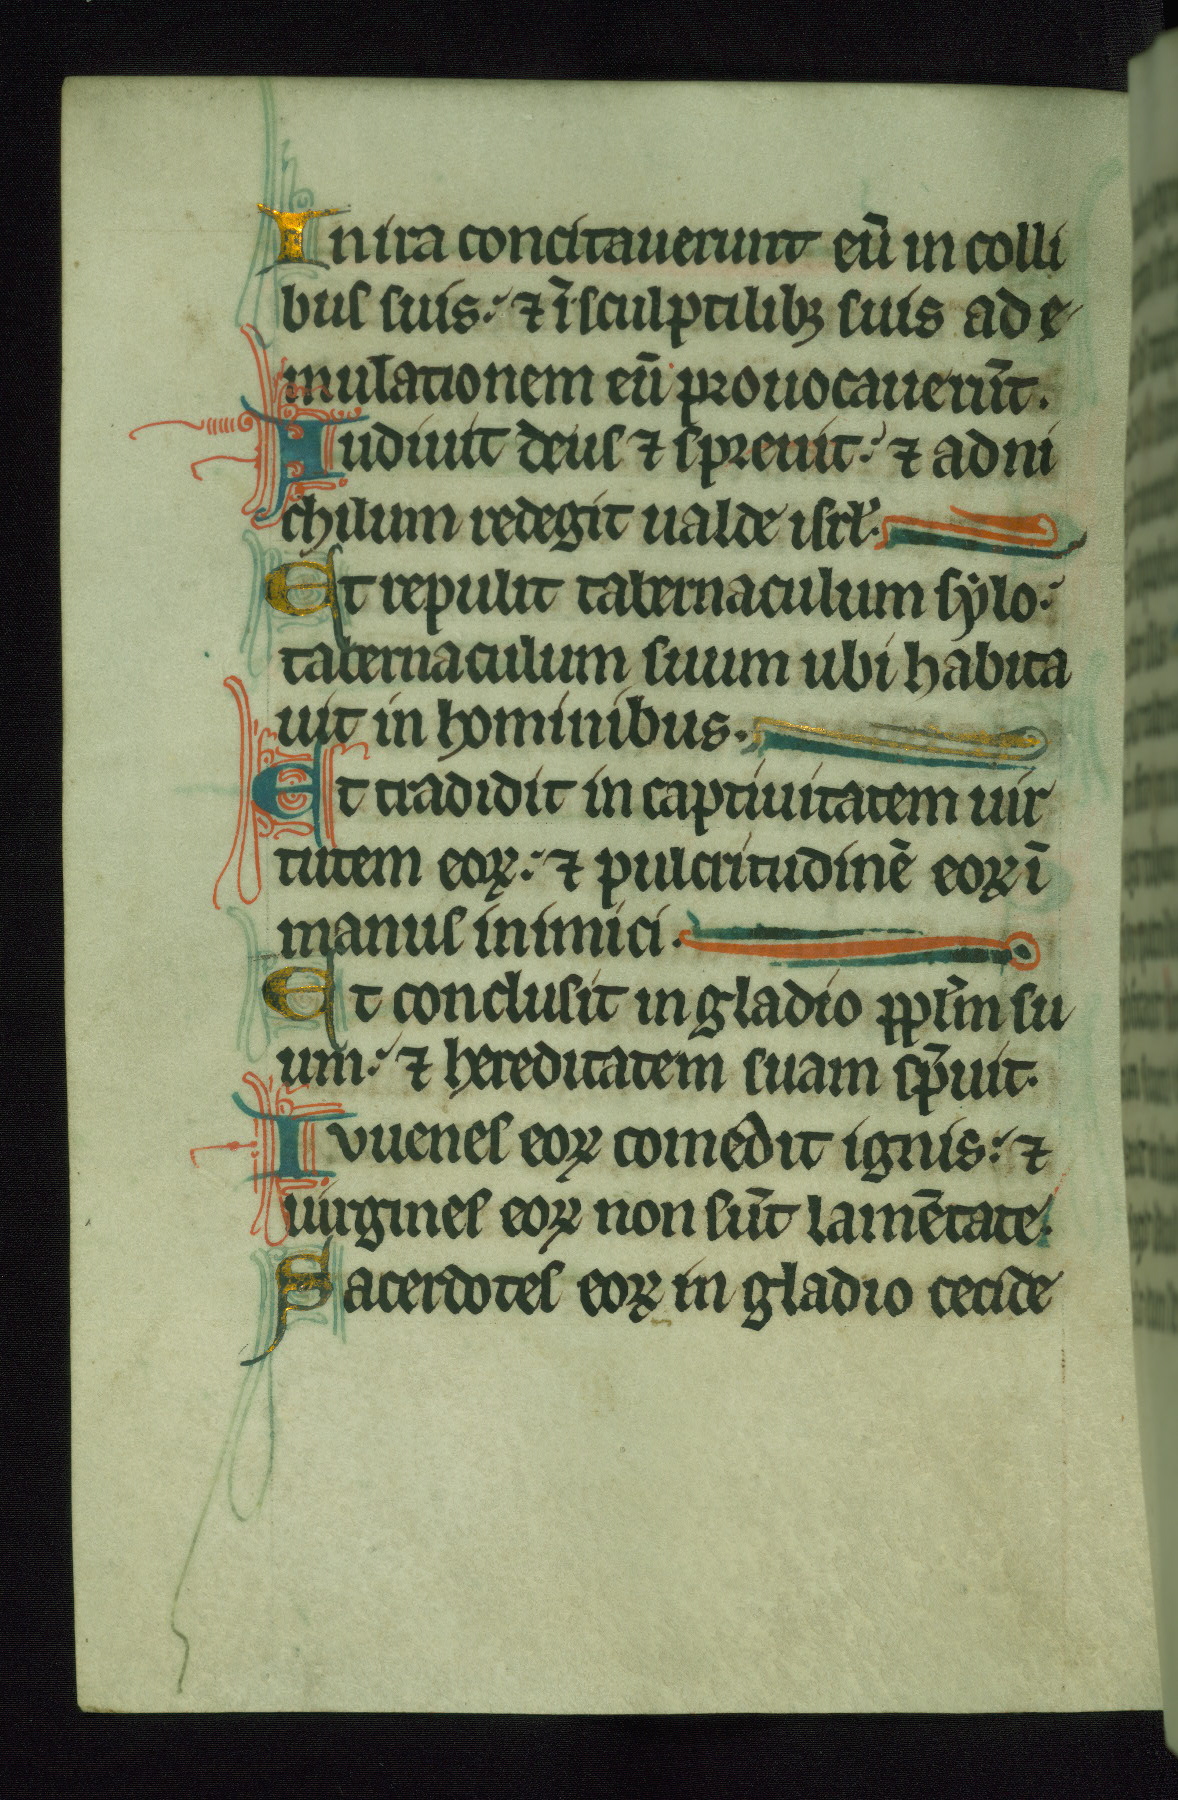 In ira concitauerunt eū in colli
bus suis: ⁊ ī sculptilibꝫ suis ad e
mulationem eū prouocauerūt.
Audiuit deus ⁊ spreuit: ⁊ ad ni
chilum redegit ualde isrl̄.
Et repulit tabernaculum sẏlo:
tabernaculum suum ubi habita
uit in hominibus.
Et tradidit in captiuitatem uir
tutem eoꝝ: ⁊ pulcritudinē eoꝝ ī
manus inimici.
Et conclusit in gladio ppl̄m su
um: ⁊ hereditatem suam sp̄uit.
Iuuenes eoꝝ comedit ignis: ⁊
uirgines eoꝝ non sūt lamētate.
Sacerdotes eoꝝ in gladio cecide